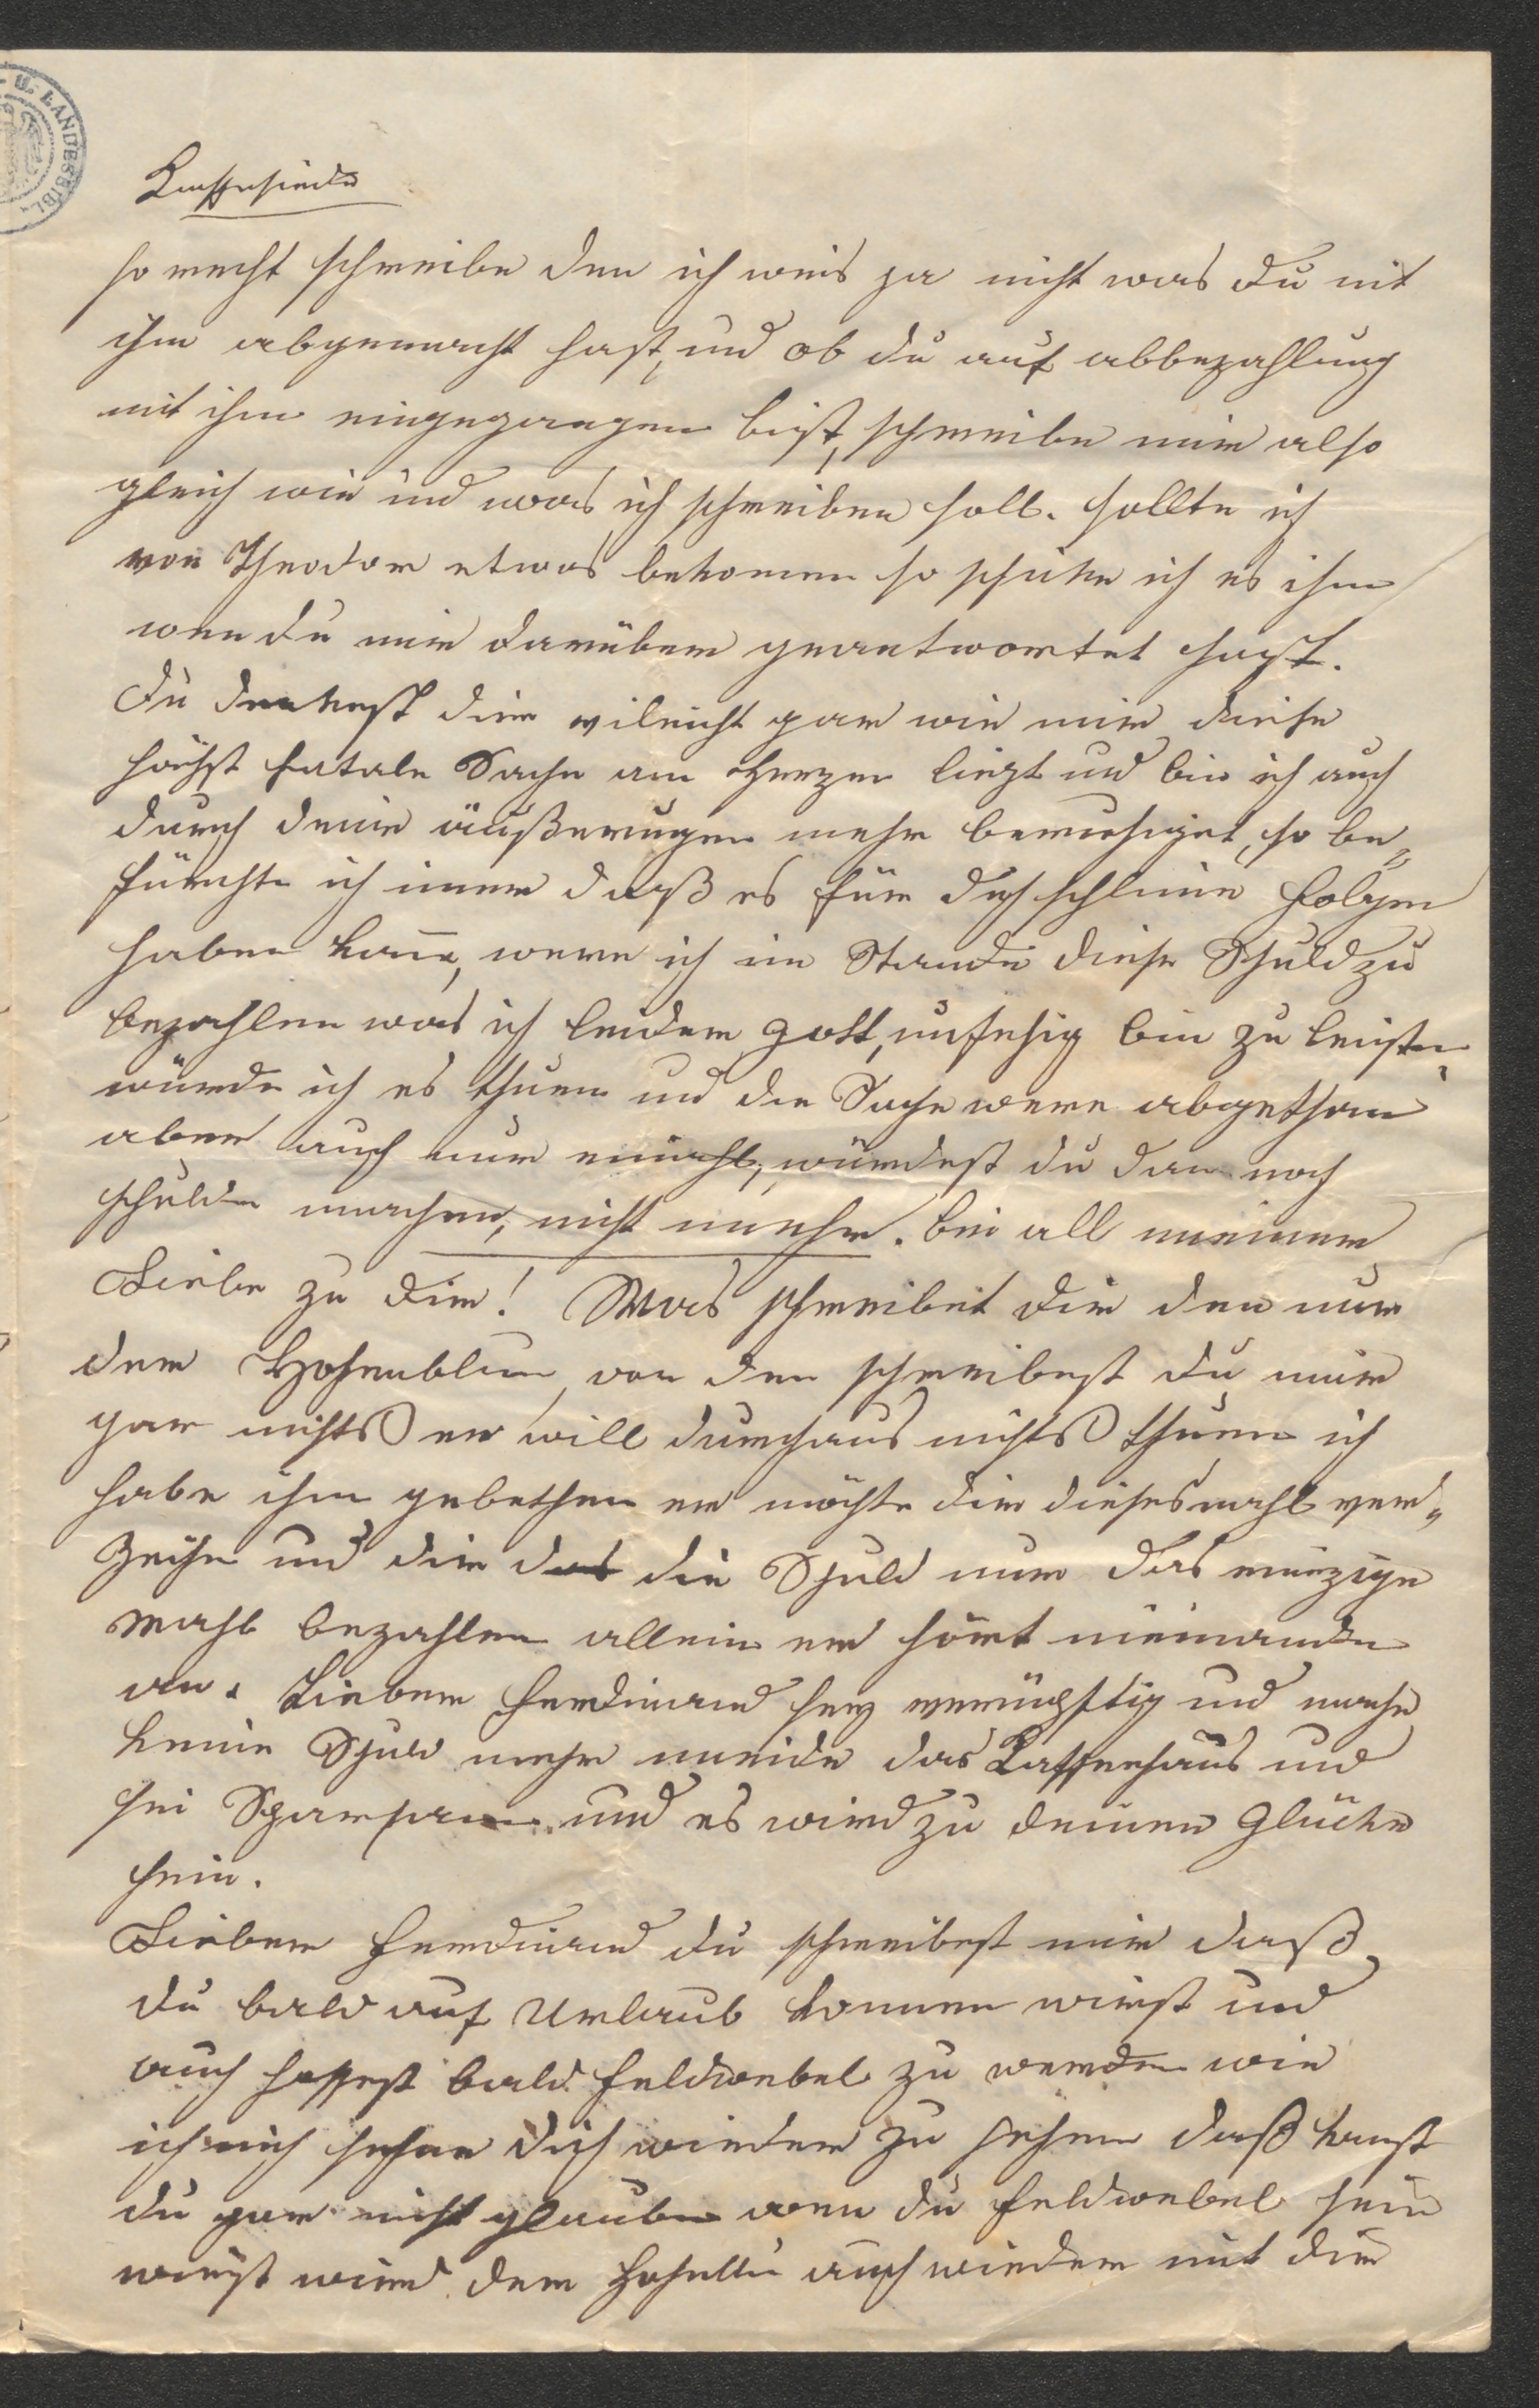 U. LANDESBIBL.
Kaffesieder
so recht schreibe den ich weis ja nicht was du mit
ihm abgemacht hast, und ob du auf abbezahlung
mit ihm eingegangen bist, schreibe mir also
gleich wie und was ich schreiben soll. sollte ich
von Theodor etwas bekomen so schicke ich es ihm
wen du mir darüber geantwortet hast.
Du denkest dir vileicht gar wie mir diese
höchst fatale Sache am Herzen liegt und bin ich auch
durch deine äußerungen mehr beruhiget, so be„
fürchte ich imer daß es für dich schlime folgen
haben kann, were ich im Stande diese Schuld zu
bezahlen was ich leider Gott, unfehig bin zu leisten,
würde ich es thuen und die Sache were abgethan
aber auch nur einmahl, würdest du dan noch
schulden machen, nicht mehr. bei all meiner
Liebe zu dir! Was schreibet dir den nur
der Hohenblum, von den schreibest du mir
gar nichts er will durchaus nichts thuen ich
habe ihm gebethen er möchte dir diesesmahl ver„
Zeihe und dir das die Schuld nur das einzige
mahl bezahlen allein er hört niemanden
an. Lieber Ferdinand sey vernünftig und mache
keine Schuld mehr meide das Kaffeehaus und
sei Sparsam und es wird zu deinen Glücke
sein.
Lieber Ferdinand du schreibest mir daß
du bald auf Urlaub kommen wirst und
auch hoffest bald Feldwebel zu werden wie
ich mich sehne dich wieder zu sehen daß kanst
du gar nicht glauben wen du Feldwebel sein
wirst wird der auch wieder mit dir